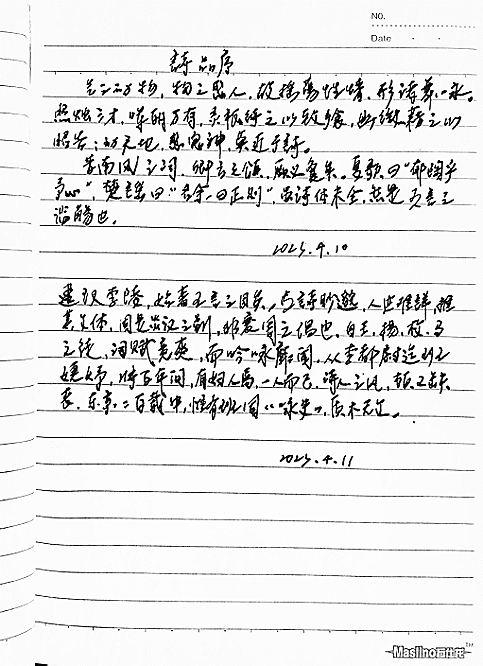 NO.
Date
詩品序
气之动物，物之感人，故摇荡性情，形诸舞咏。
照烛三才，晖丽万有，灵祇待之以致飨，幽微藉之以
昭告；动天地，感鬼神，莫近于诗。
昔南风之词，卿云之颂，厥义夐矣。夏歌曰“郁陶乎
予心”，楚谣曰“名余曰正则”，虽诗体未全，然是五言之
滥觞也。
2025.4.10
逮汉李陵，始著五言之目矣。古诗眇邈，人世难详，推
其文体，固是炎汉之制，非衰周之倡也。自王、扬、枚、马
之徒，词赋竞爽，而吟咏靡闻。从李都尉迄班
婕妤，将百年间，有妇人焉，一人而已。诗人之风，顿已缺
丧。东京二百载中，惟有班固《咏史》，质木无文。
2025.4.11
Maslino